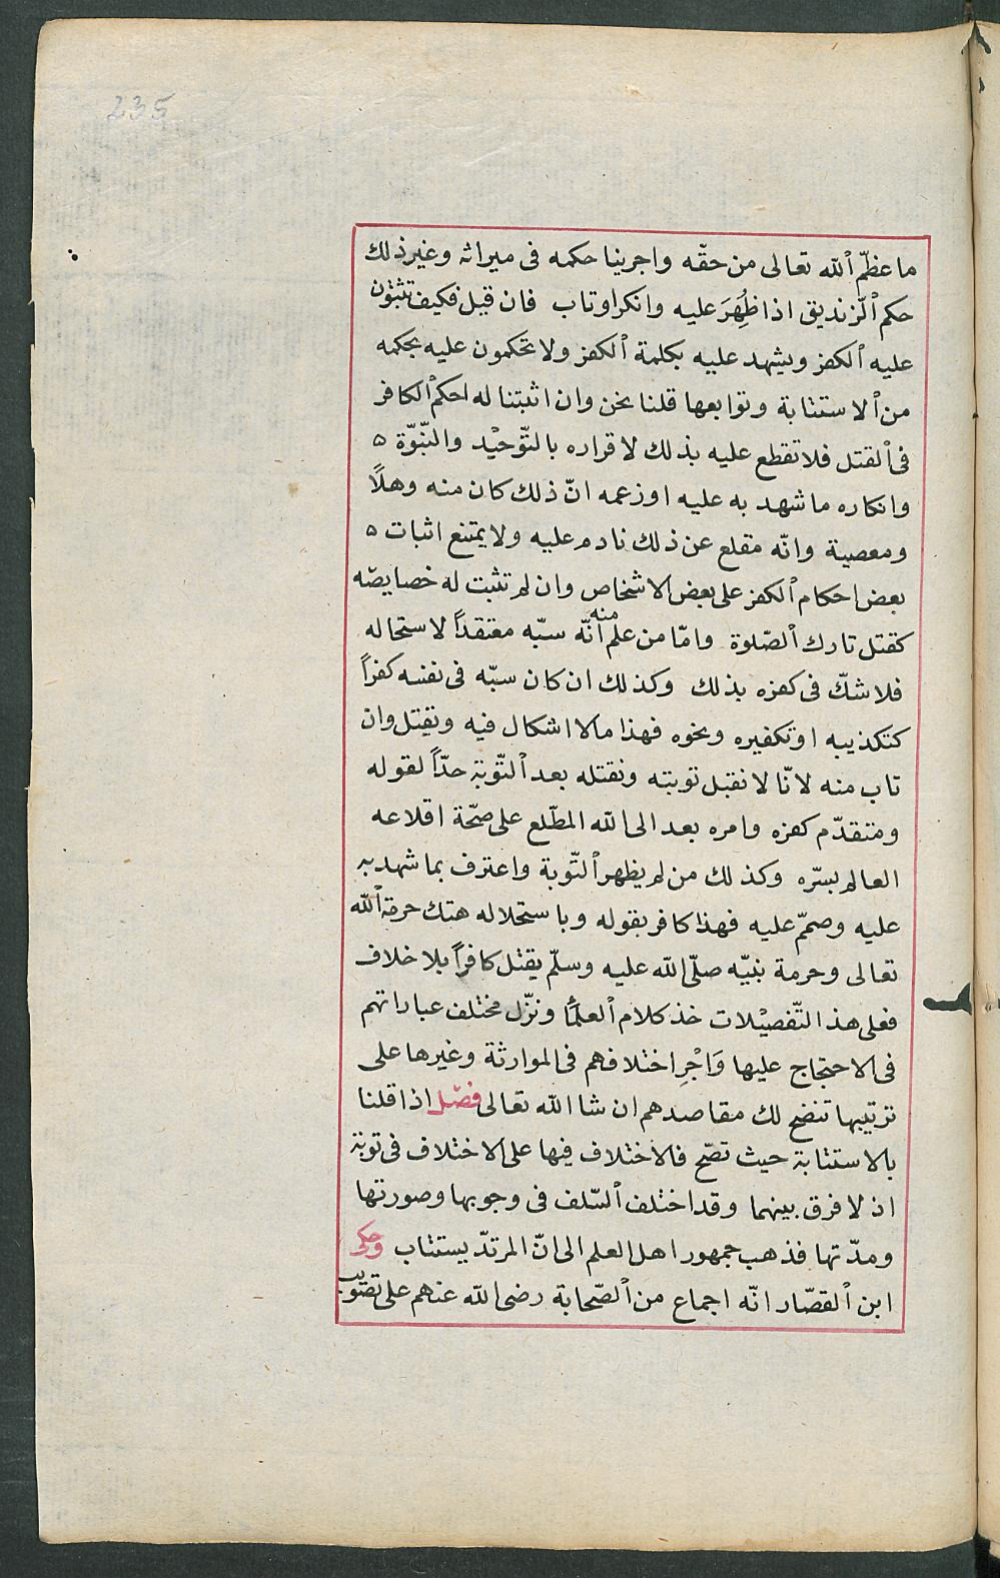 235
ما عظّم ٱلله تعالى من حقّه واجرينا حكمه فى ميراثه وغيرذلك
حكم ٱلزنديق اذا ظُهِرَ عليه وانكراوتاب فان قيل فكيف تثبتون
عليه ٱلكفر ويشهد عليه بكلمة ٱلكفر ولا تحكمون عليه بحكمه
من ٱلاستتابة وتوابعها قلنا نحن وان اثبتنا له احكم ٱلكافر
فى ٱلقتل فلا تقطع عليه بذلك لا قراره بالتّوحيد والنّبوّة ٥
وانكاره ما شهد به عليه اوزعمه انّ ذلك كان منه وهلاً
ومعصية وانّه مقلع عن ذلك نادم عليه ولا يمتنع اثبات ٥
بعض احكام ٱلكفر على بعض الاشخاص وان لم تثبت له خصايصّه
كقتل تارك ٱلصّلوة وامّا من علم منه انّه سبّه معتقداً لاستحاله
فلا شكّ فى كفره بذلك وكذلك ان كان سبّه فى نفسه كفراً
كتكذيبه اوتكفيره ونحوه فهذا مالا اشكال فيه ويقتل وان
تاب منه لانّا لا نقبل توبته ونقتله بعد ٱلتّوبة حدّاً لقوله
ومتقدّم كفره وامره بعد الى الله المطّلع على صحّة اقلاعه
العالم بسرّه وكذلك من لم يظهر ٱلتّوبة واعترف بما شهد به
عليه وصمّم عليه فهذا كافر بقوله وباستحلاله هتك حرمة ٱلله
تعالى وحرمة نبيّه صلّى الله عليه وسلّم يقتل كافراً بلا خلاف
فعلى هذا التّفصيلات خذ كلام ٱلعلمأ ونزّل مختلف عباراتهم
فى الاحتجاج عليها وَاَجْرِ اختلافهم فى الموارثة وغيرها على
ترتيبها تنضح لك مقاصدهم ان شا الله تعالى فصل اذا قلنا
بالاستتابة حيث تصّح فالاختلاف فيها على الاختلاف فى توبة
اذ لا فرق بينهما وقد اختلف ٱلسّلف فى وجوبها وصورتها
ومدّتها فذهب جمهور اهل العلم الى انّ المرتدّ يستتاب وحكى
ابن ٱلقصّار انّه اجماع من ٱلصّحابة رضى الله عنهم على تصويب